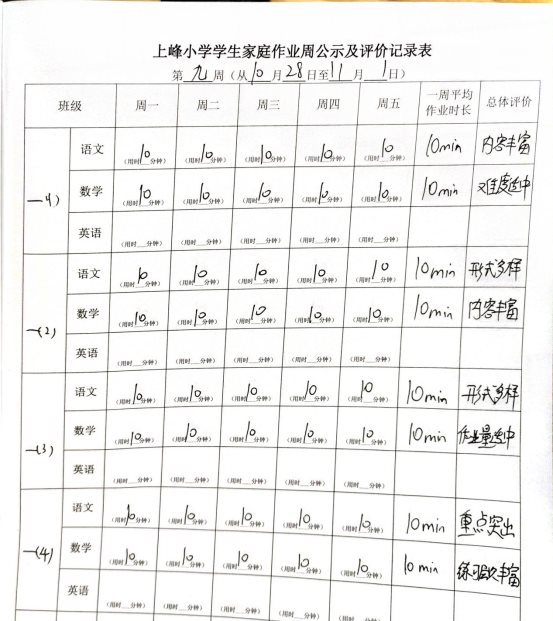 上峰小学学生家庭作业周公示及评价记录表
第九周（从10月28日至11月1日）
班级 周一 周二 周三 周四 周五 一周平均作业时长 总体评价
一(1) 语文 10（用时__分钟） 10（用时__分钟） 10（用时__分钟） 10（用时__分钟） 10（用时__分钟） 10min 内容丰富
数学 10（用时__分钟） 10（用时__分钟） 10（用时__分钟） 10（用时__分钟） 10（用时__分钟） 10min 难度适中
英语 （用时__分钟） （用时__分钟） （用时__分钟） （用时__分钟） （用时__分钟）
一(2) 语文 10（用时__分钟） 10（用时__分钟） 10（用时__分钟） 10（用时__分钟） 10（用时__分钟） 10min 形式多样
数学 10（用时__分钟） 10（用时__分钟） 10（用时__分钟） 10（用时__分钟） 10（用时__分钟） 10min 内容丰富
英语 （用时__分钟） （用时__分钟） （用时__分钟） （用时__分钟） （用时__分钟）
一(3) 语文 10（用时__分钟） 10（用时__分钟） 10（用时__分钟） 10（用时__分钟） 10（用时__分钟） 10min 形式多样
数学 10（用时__分钟） 10（用时__分钟） 10（用时__分钟） 10（用时__分钟） 10（用时__分钟） 10min 作业量适中
英语 （用时__分钟） （用时__分钟） （用时__分钟） （用时__分钟） （用时__分钟）
一(4) 语文 10（用时__分钟） 10（用时__分钟） 10（用时__分钟） 10（用时__分钟） 10（用时__分钟） 10min 重点突出
数学 10（用时__分钟） 10（用时__分钟） 10（用时__分钟） 10（用时__分钟） 10（用时__分钟） 10min 丰富
英语 （用时__分钟） （用时__分钟） （用时__分钟） （用时__分钟） （用时__分钟）